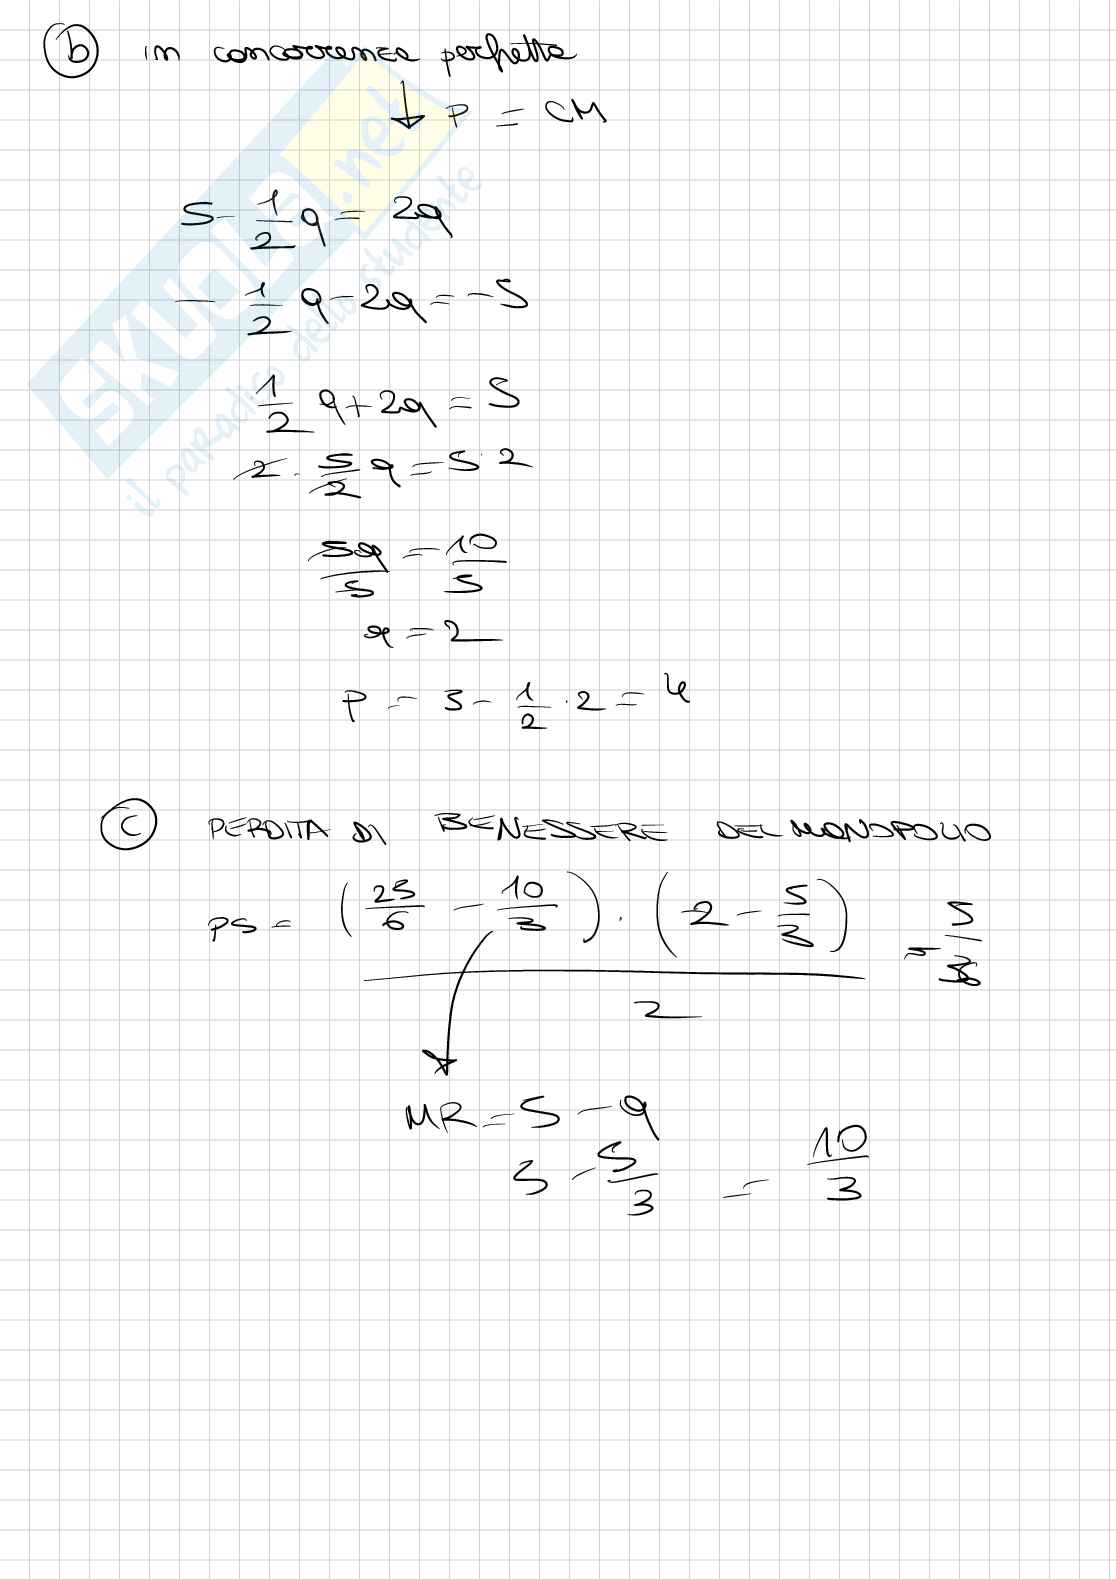 b in concorrenza perfetta
↓ P = CM
5 - 1/2 q = 2q
- 1/2 q - 2q = -5
1/2 q + 2q = 5
2 · 5/2 q = 5 · 2
5q/5 = 10/5
q = 2
P = 5 - 1/2 · 2 = 4
c PERDITA DI BENESSERE DEL MONOPOLIO
PS = (25/6 - 10/3) · (2 - 5/3) / 2 =
MR = 5 - q
5 - 5/3 = 10/3
SKUOLA.net
il paradiso dello studente